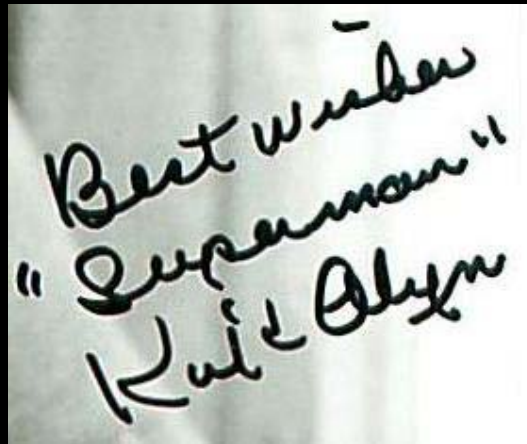 Best wishes
"Superman"
Kirk Alyn